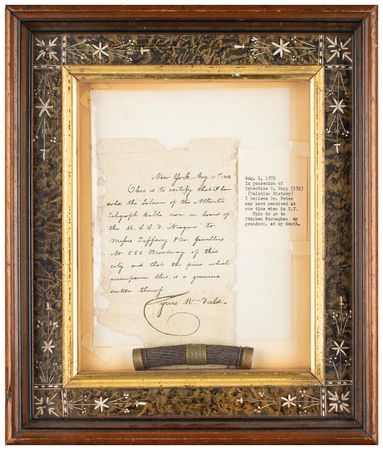 New York Aug. 21st 1858
This is to certify that I have
sold the balance of the Atlantic
Telegraph Cable now on board of
the U.S.S.F. Niagara to
Messrs Tiffany & Co. Jewellers
No 550 Broadway of this
city, and that the piece which
accompanies this, is a genuine
section thereof.
Cyrus W. Field
Aug. 1, 1975
In possession of
Ernestine G.
(Galatian History)
I believe Dr. Peter
may have received at
one time when in N.Y.
This to go to
Stephen Kernaghan my
grandson, at my death.